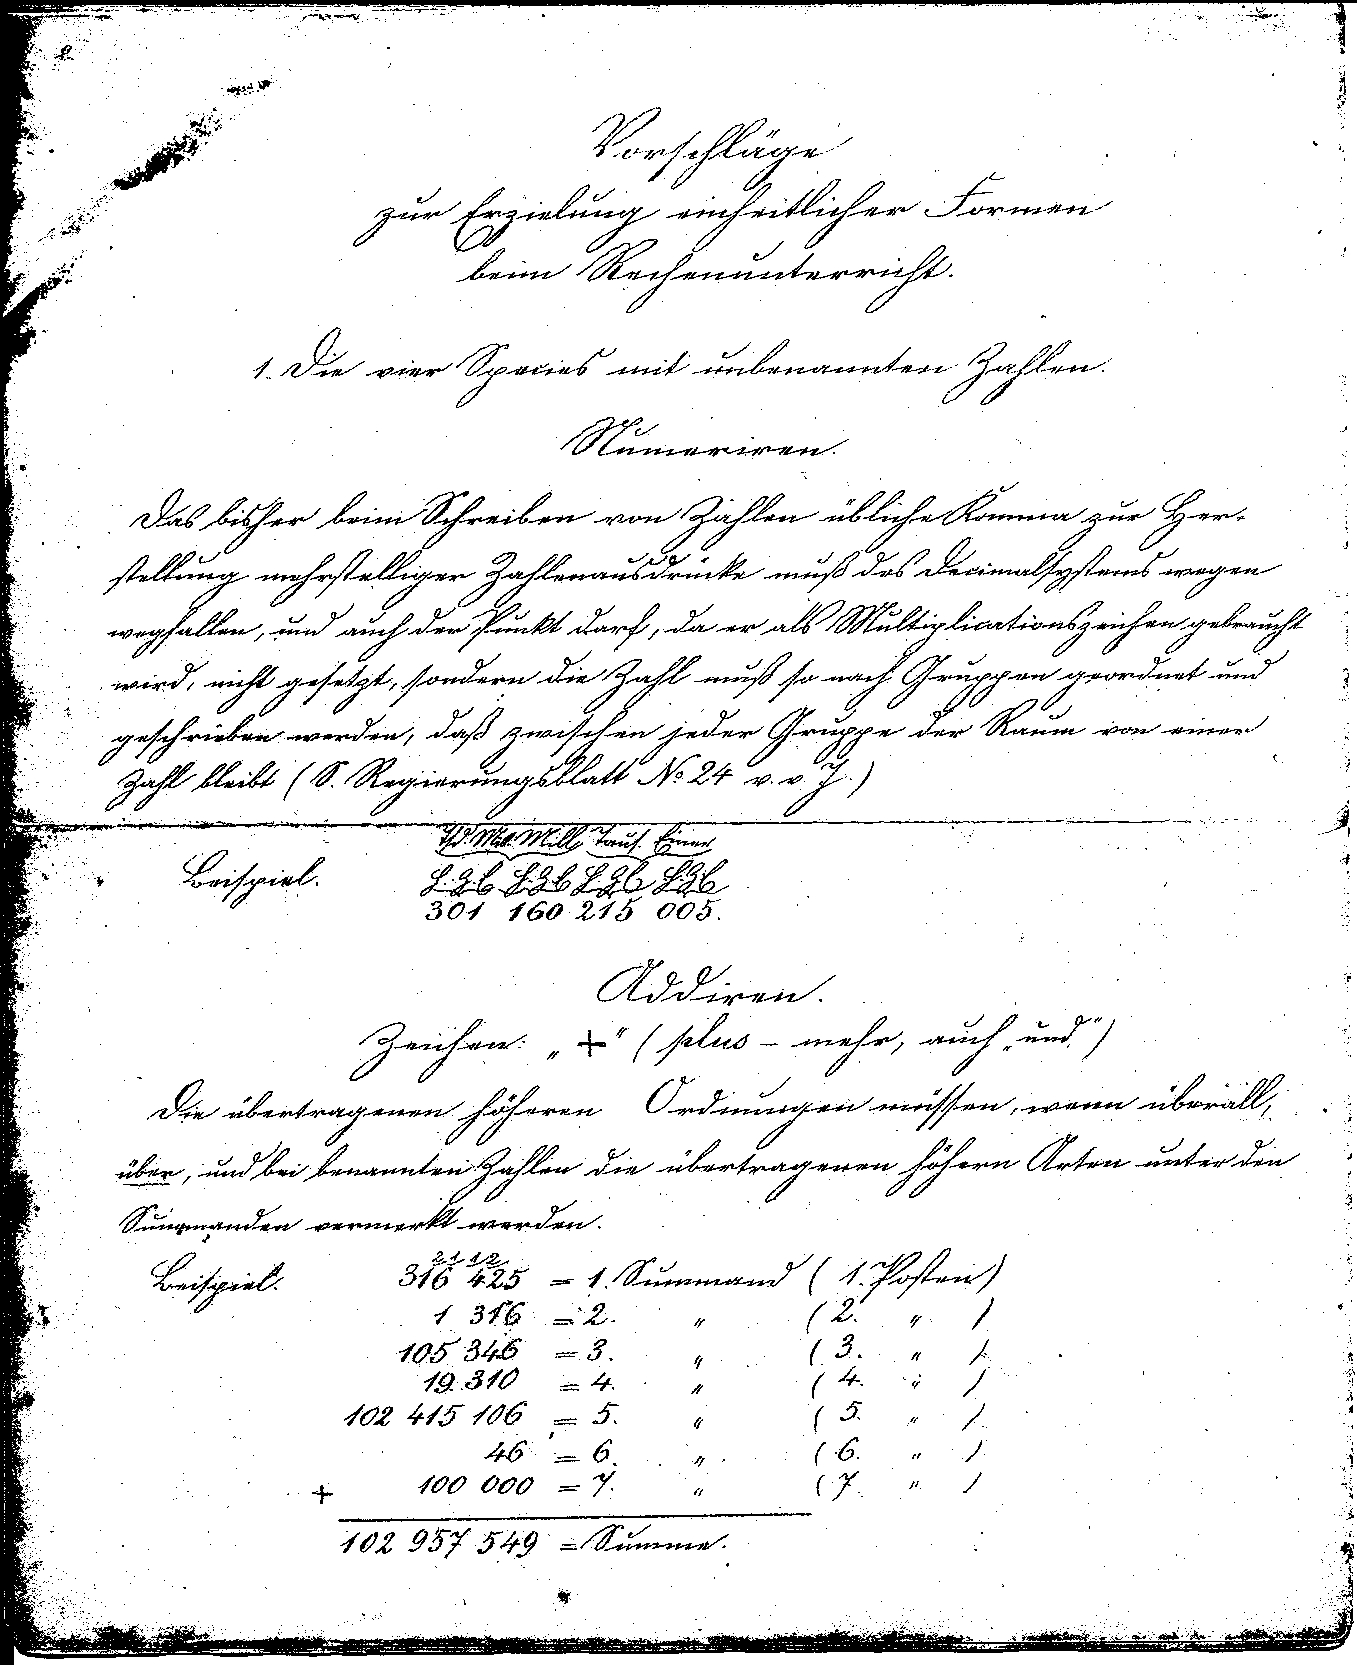 Vorschläge
zur Erzielung einheitlicher Formen
beim Rechenunterricht.
1. Die vier Species mit unbenannten Zahlen.
Numeriren.
Das bisher beim Schreiben von Zahlen übliche Komma zur Her-
stellung mehrstelliger Zahlenausdrücke muß des Decimalsystems wegen
wegfallen, und auch der Punkt darf, da er als Multiplicationszeichen gebraucht
wird, nicht gesetzt, sondern die Zahl muß so nach Gruppen geordnet und
geschrieben werden, daß zwischen jeder Gruppe der Raum von einer
Zahl bleibt (S. Regierungsblatt No 24 v. v. J.)
Mill. Taus. Einer
Beispiel.
301 160 215 005.
Addiren.
Zeichen: „+" (plus – mehr, auch „und")
Die übertragenen höheren Ordnungen müssen, wenn überall,
über, und bei benannten Zahlen die übertragenen höhern Arten unter den
Summanden vermerkt werden.
21 12
Beispiel. 316 425 = 1. Summand (1. Posten)
1 316 = 2. " (2. " )
105 346 = 3. " (3. " )
19 310 = 4. " (4. " )
102 415 106 = 5. " (5. " )
46 = 6. " (6. " )
+ 100 000 = 7. " (7. " )
102 957 549 = Summe.